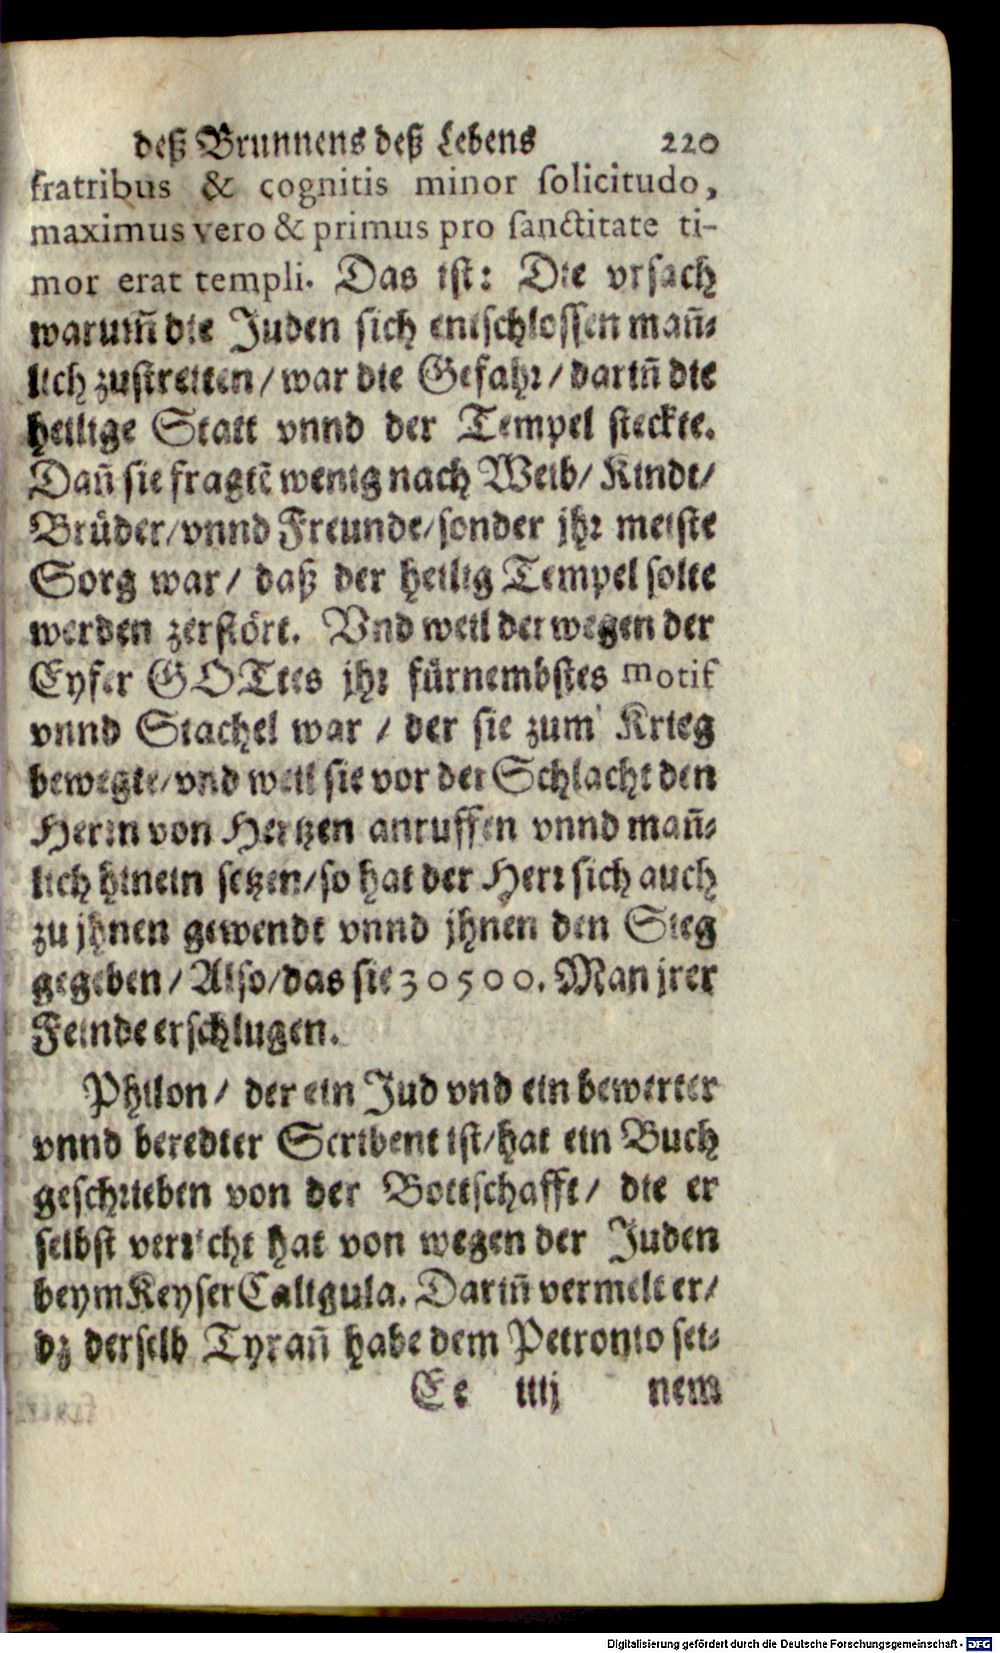 deß Brunnens deß Lebens 220
fratribus & cognitis minor ſolicitudo,
maximus vero & primus pro ſanctitate ti-
mor erat templi. Das iſt: Die vrſach
warum̃ die Juden ſich entſchloſſen mañ⸗
lich zuſtreiten/ war die Gefahr/ dariñ die
heilige Statt vnnd der Tempel ſteckte.
Dañ ſie fragtẽ wenig nach Weib/ Kinde/
Brüder/ vnnd Freunde/ ſonder jhr meiſte
Sorg war/ daß der heilig Tempel ſolte
werden zerſtört. Vnd weil derwegen der
Eyfer GOTtes jhr fürnembſtes motif
vnnd Stachel war / der ſie zum Krieg
bewegte/ vnd weil ſie vor der Schlacht den
Herrn von Hertzen anruffen vnnd mañ⸗
lich hinein ſetzen/ ſo hat der Herr ſich auch
zu jhnen gewendt vnnd jhnen den Sieg
gegeben/ Alſo/ das ſie 30500. Man jrer
Feinde erſchlugen.
Philon/ der ein Jud vnd ein bewerter
vnnd beredter Scribent iſt/ hat ein Buch
geſchrieben von der Bottſchafft/ die er
ſelbſt verricht hat von wegen der Juden
beym Keyſer Caligula. Dariñ vermelt er/
dz derſelb Tyrañ habe dem Petronio ſei⸗
Ee iiij nem
Digitalisierung gefördert durch die Deutsche Forschungsgemeinschaft - DFG